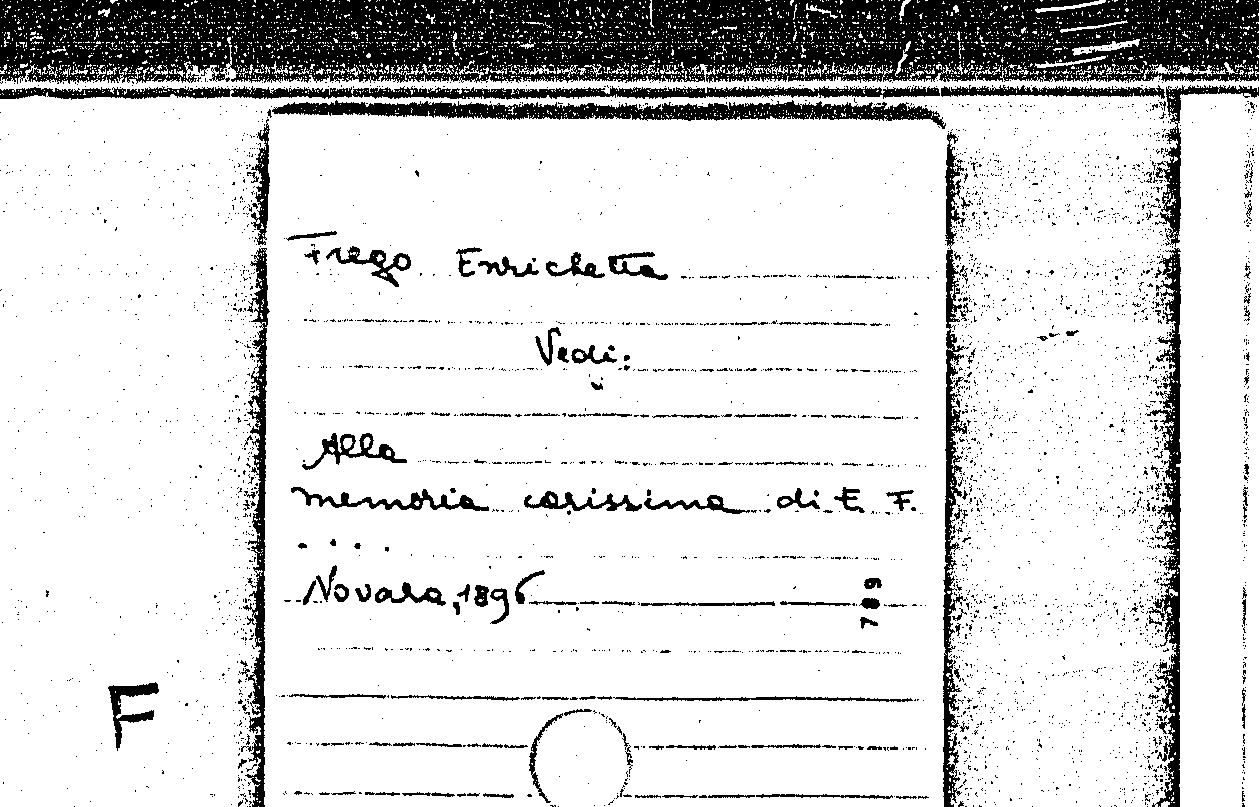 Frego Enrichetta
Vedi:
Alla
memoria carissima di E. F.
. . . .
Novara, 1896
789
F